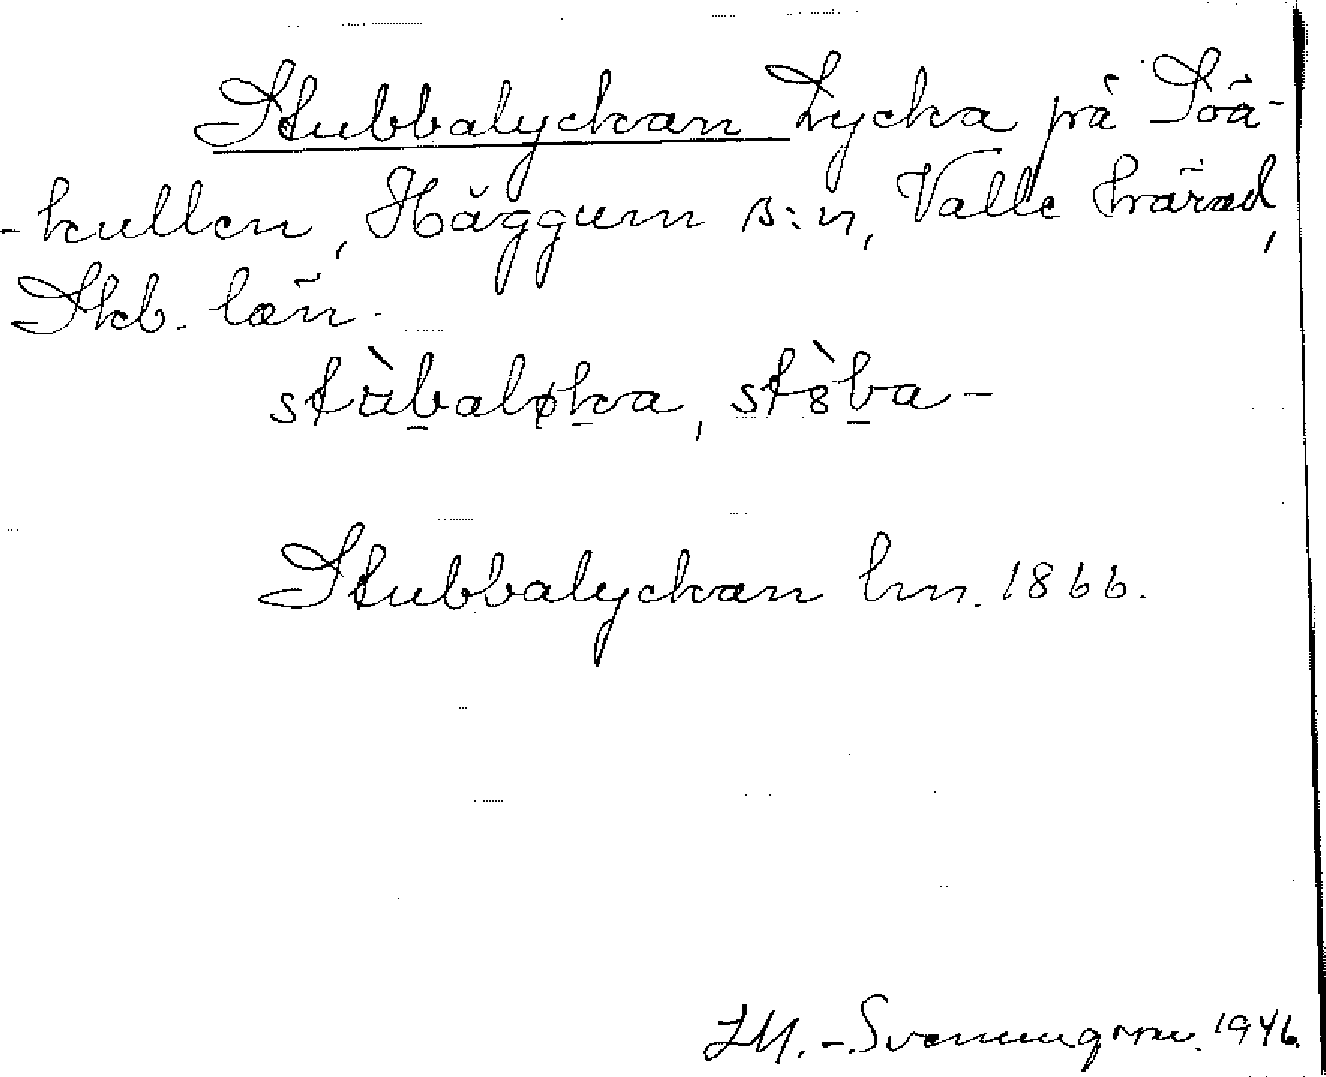 Stubbalyckan Lycka på Töå-
-kullen, Häggum s:n, Valle härad,
Skb. län.
stùbaløka, stòba-
Stubbalyckan hm. 1866.
1946.